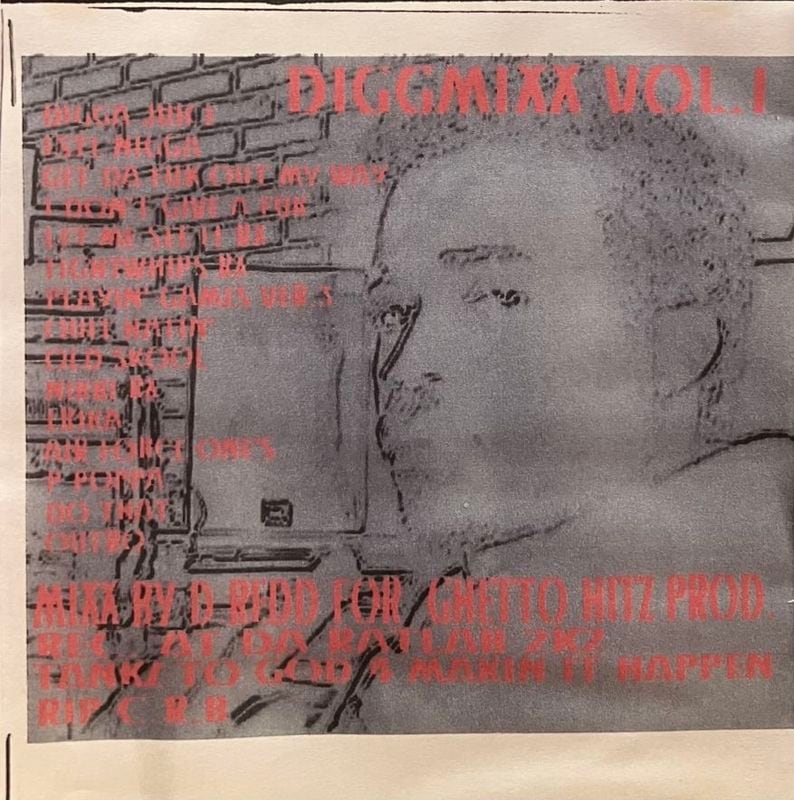 DIGGMIXX VOL.1
DIGGA JUICE
NIGGA
GET DA FUK OUT MY WAY
I DON'T GIVE A FUK
LET ME SEE IT RX
TIGHTWHIPS RX
PLAYIN' GAMES VER.3
QUIT HATIN'
OLD SKOOL
NIKKI RX
ERIKA
AIR FORCE ONE'S
P-POPPA
DO THAT
OUTRO
MIXX BY D REDD FOR GHETTO HITZ PROD.
REC. AT DA RATLAB 2K2
TANKS TO GOD 4 MAKIN IT HAPPEN
RIP C R.B